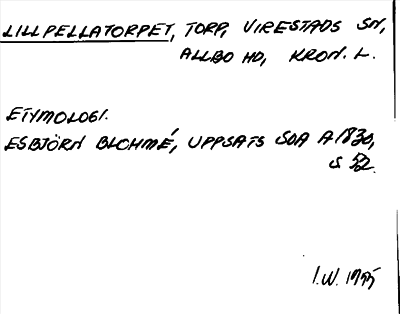 LILLPELLATORPET, TORP, VIRESTADS SN,
ALLBO HD, KRON. L.
ETYMOLOGI.
ESBJÖRN BLOHMÉ, UPPSATS SOA A1830,
S 52.
I.W. 1975